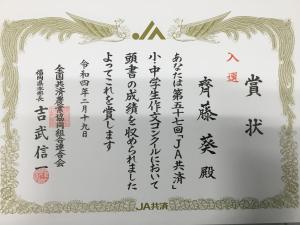 JA
賞状
入選
齊藤葵殿
あなたは第五十七回「JA共済」
小・中学生作文コンクールにおいて
頭書の成績を収められました
よってこれを賞します
令和四年二月十九日
全国共済農業協同組合連合会
福岡県本部長 吉武信一
JA共済